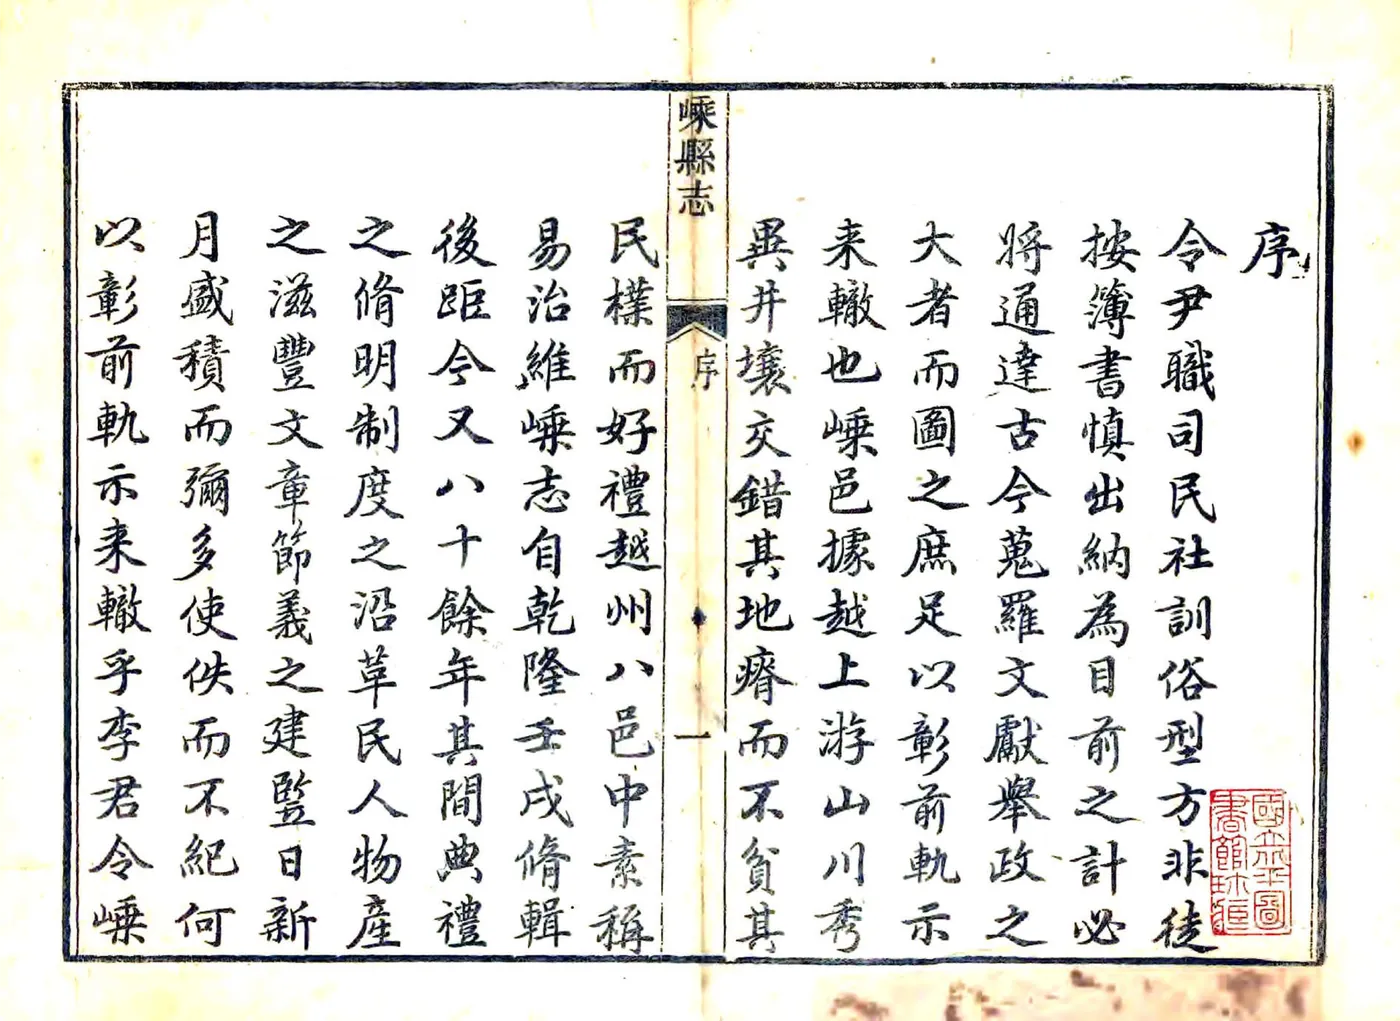 序
令尹職司民社訓俗型方非徒
按簿書慎出納為目前之計必
將通達古今蒐羅文獻舉政之
大者而圖之庶足以彰前軌示
来轍也嵊邑據越上游山川秀
異井壤交錯其地瘠而不貧其
嵊縣志
序
一
民樸而好禮越州八邑中素稱
易治維嵊志自乾隆壬戌脩輯
後距今又八十餘年其間典禮
之脩明制度之沿革民人物產
之滋豐文章節義之建豎日新
月盛積而彌多使佚而不紀何
以彰前軌示来轍乎李君令嵊